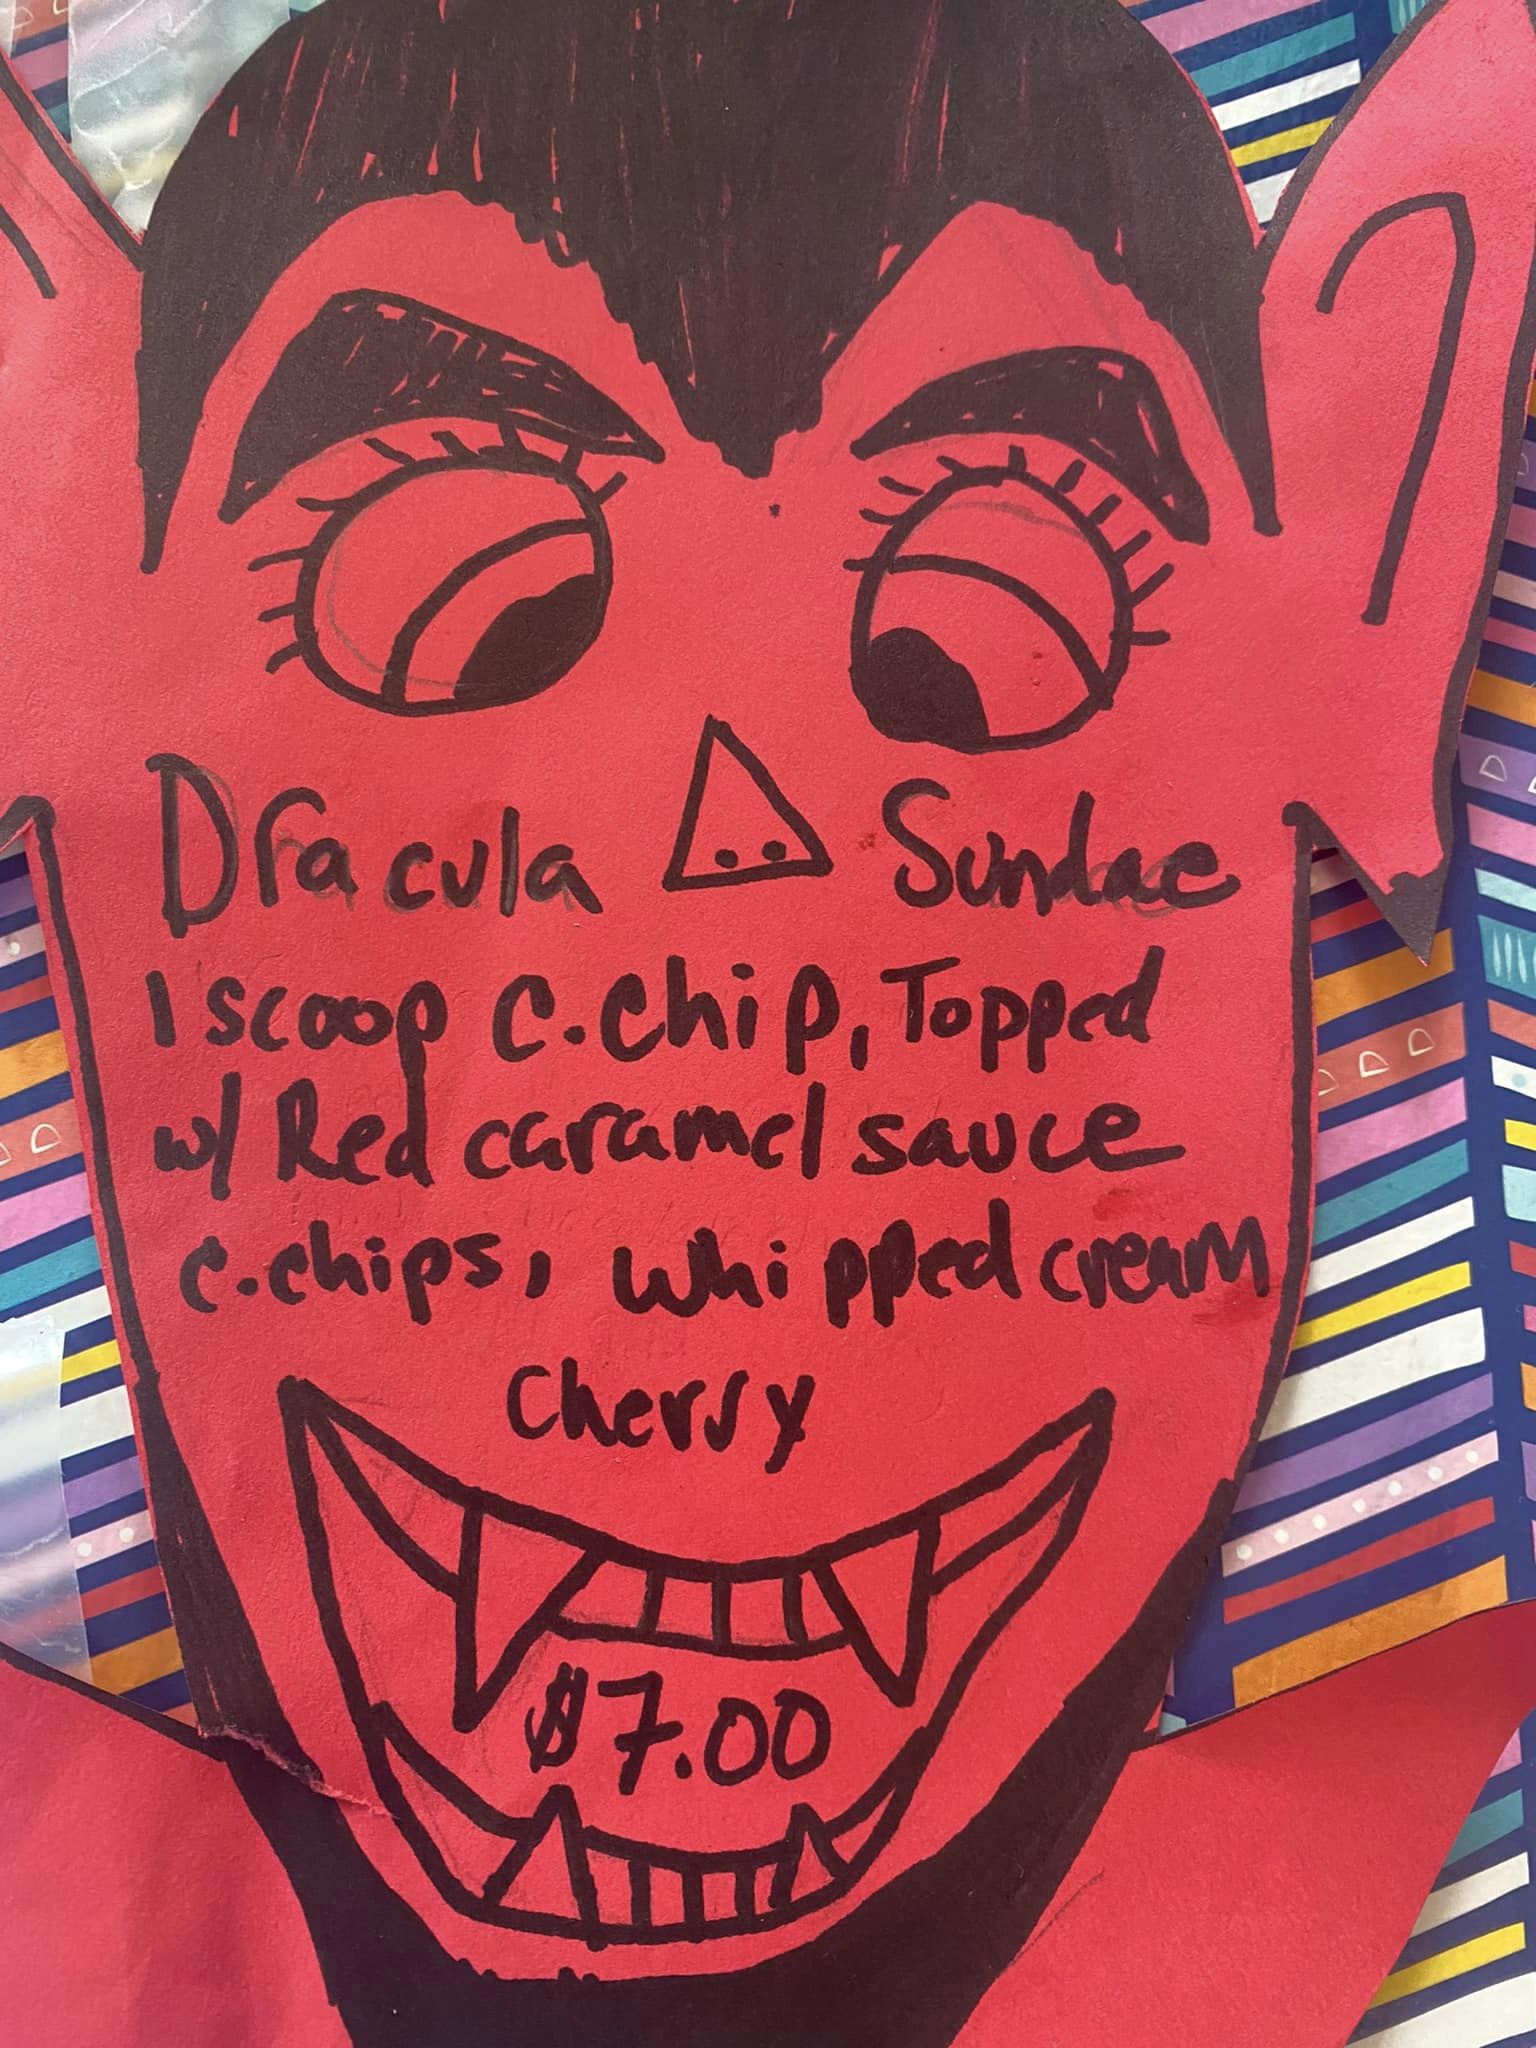 Dracula Sundae
1 scoop c.chip, Topped
w/ Red caramel sauce
c.chips, whipped cream
cherry
$7.00